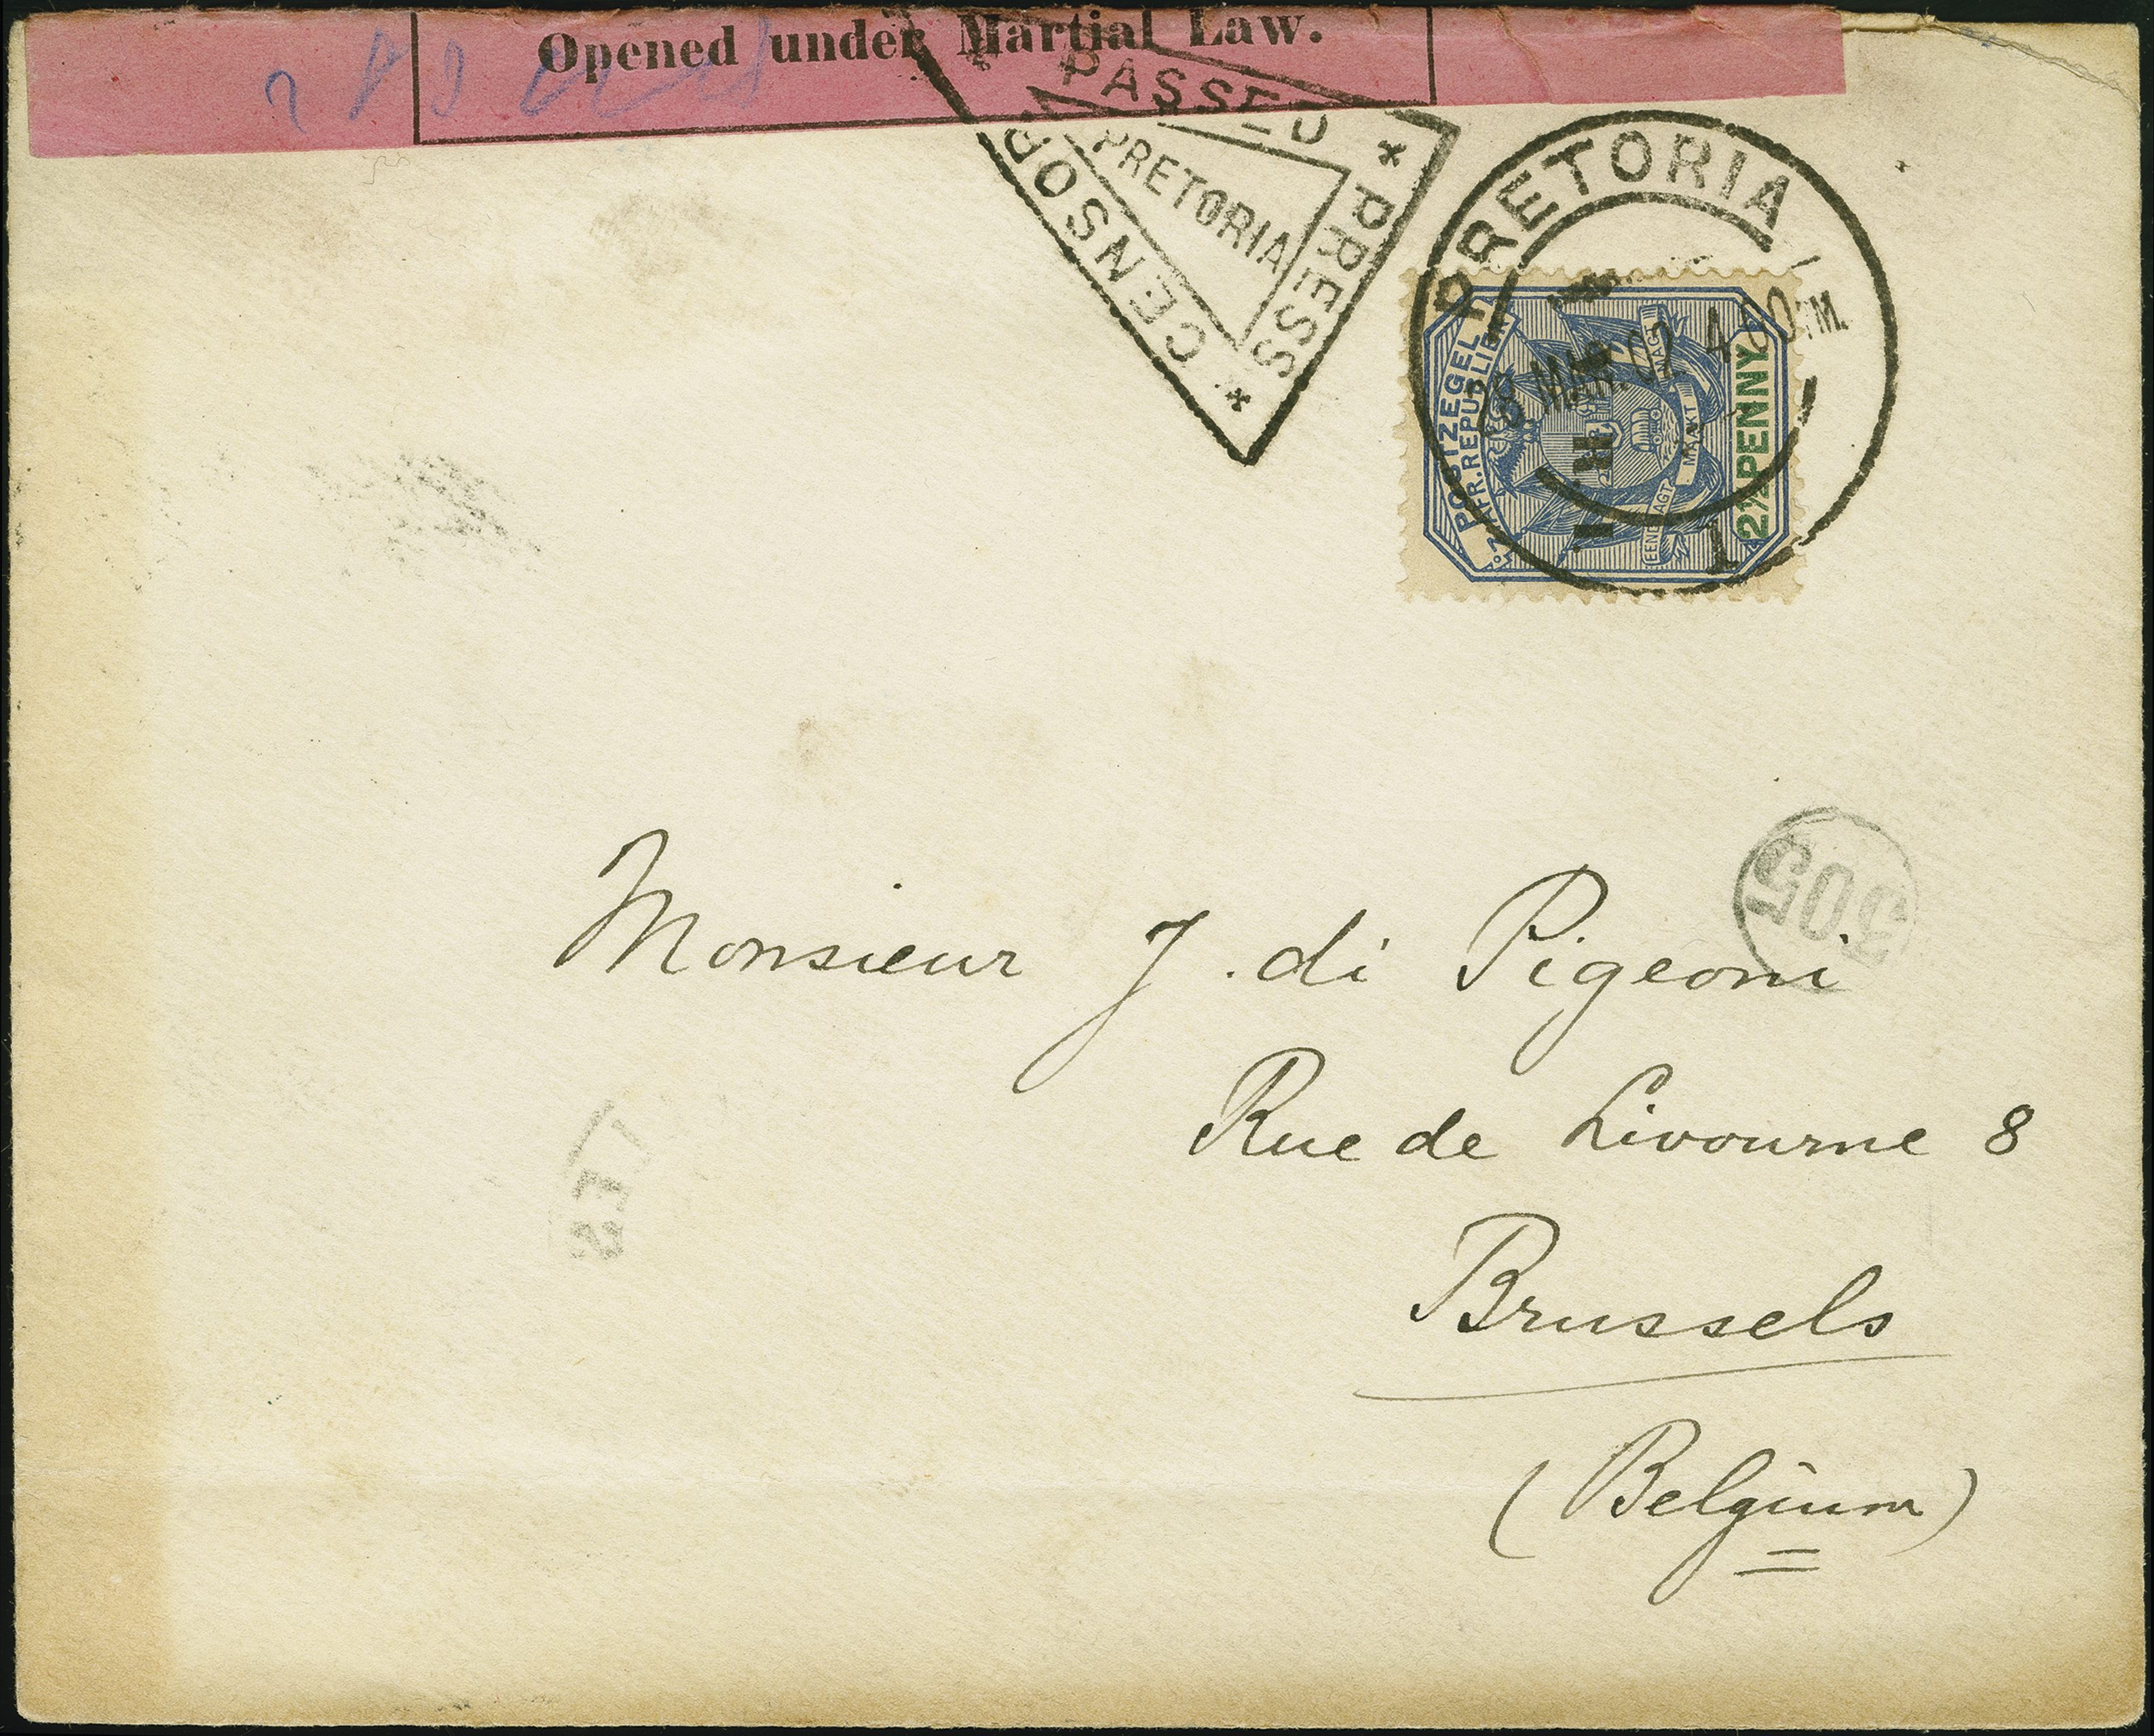 Opened under Martial Law.
PASSED * PRESS * CENSOR
PRETORIA
PRETORIA
MAR. 02
1
POSTZEGEL
Z. AFR. REPUBLIEK
EENDRAGT MAAKT MAGT
2½ PENNY
305
Monsieur J. di Pigeoni
Rue de Livourne 8
Brussels
(Belgium)